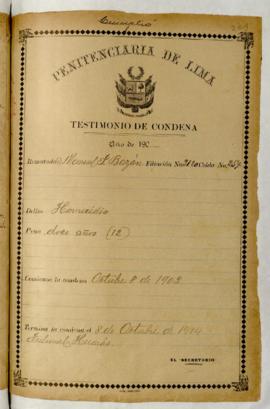 Cumplió
PENITENCIARIA DE LIMA
TESTIMONIO DE CONDENA
Año de 190
Rematado Manuel I. Bazán Filiación No. Celda No.
Delito Homicidio
Pena doce años (12)
Comienza la condena Octubre 8 de 1902
Termina la condena el 8 de Octubre de 1914
Tribunal
EL SECRETARIO